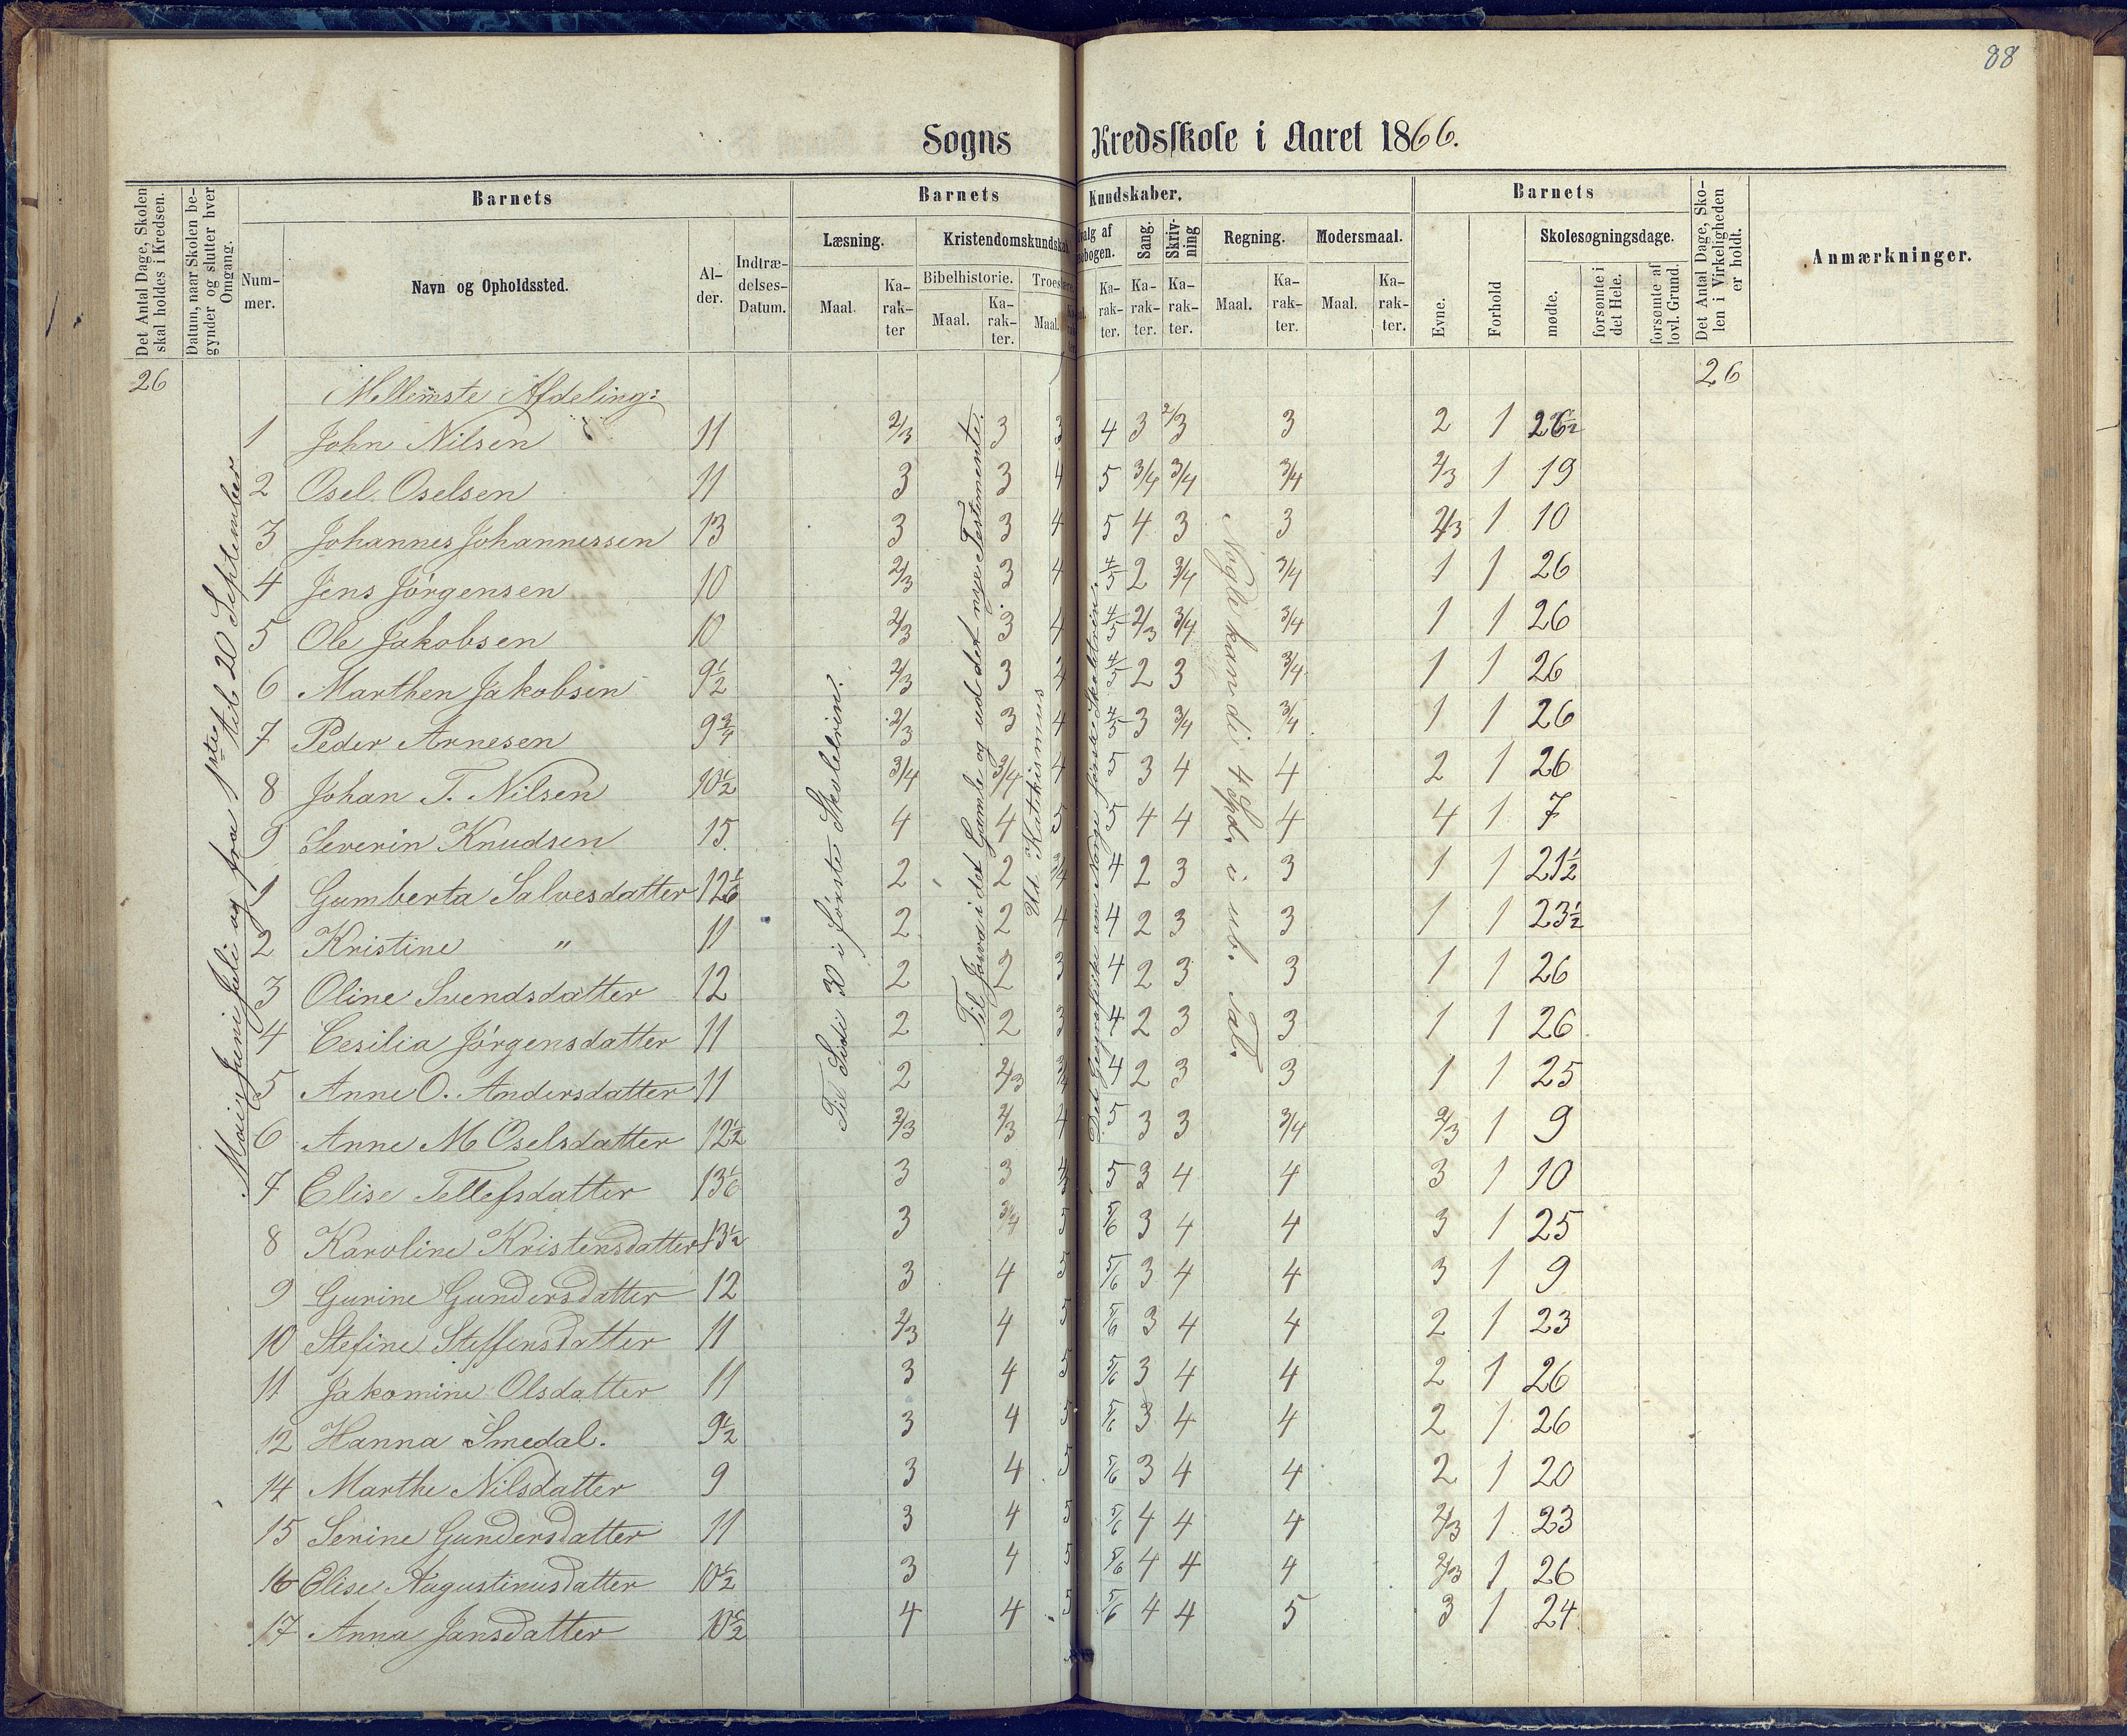 88
Sogns Kredsskole i Aaret 1866.
Det Antal Dage, Skolen skal holdes i Kredsen.
Datum, naar Skolen begynder og slutter hver Omgang.
Barnets
Nummer.
Navn og Opholdssted.
Alder.
Indtrædelses-Datum.
Barnets Kundskaber.
Læsning.
Maal.
Karakter
Kristendomskundskab
Bibelhistorie.
Maal.
Karakter.
Troeslære
Maal.
valg af
Karakter.
Sang.
Karakter.
Skrivning
Karakter.
Regning.
Maal.
Karakter.
Modersmaal.
Maal.
Karakter.
Barnets
Evne.
Forhold
Skolesøgningsdage.
mødte.
forsømte i det Hele.
forsømte af lovl. Grund.
Det Antal Dage, Skolen i Virkeligheden er holdt.
Anmærkninger.
26 Mellemste Afdeling: 26
1 John Nilsen 11 2/3 3 3 4 3 2/3 3 2 1 26½
2 Osel Oselsen 11 3 3 4 5 3/4 3/4 3/4 2/3 1 19
3 Johannes Johannessen 13 3 3 4 5 4 3 3 2/3 1 10
4 Jens Jörgensen 10 2/3 3 4 4/5 2 3/4 3/4 1 1 26
5 Ole Jakobsen 10 2/3 3 4 4/5 2/3 3/4 3/4 1 1 26
6 Marthen Jakobsen 9½ 2/3 3 4 4/5 2 3 3/4 1 1 26
7 Peder Arnesen 9¾ 2/3 3 4 4/5 3 3/4 3/4 1 1 26
8 Johan T. Nilsen 10½ 3/4 3/4 4 5 3 4 4 2 1 26
9 Severin Knudsen 15. 4 4 5 5 4 4 4 4 1 7
1 Gumberta Salvesdatter 12 1/6 2 2 3/4 4 2 3 3 1 1 21½
2 Kristine " 11 2 2 4 4 2 3 3 1 1 23½
3 Oline Svendsdatter 12 2 2 3 4 2 3 3 1 1 26
4 Cesilia Jörgensdatter 11 2 2 3 4 2 3 3 1 1 26
5 Anne O. Andersdatter 11 2 2/3 3/4 4 2 3 3 1 1 25
6 Anne M Oselsdatter 12½ 2/3 2/3 4 5 3 3 3/4 2/3 1 9
7 Elise Tellefsdatter 13 1/6 3 3 4/5 5 3 4 4 3 1 10
8 Karoline Kristensdatter 13½ 3 3/4 5 5/6 3 4 4 3 1 25
9 Gurine Gundersdatter 12 3 4 5 5/6 3 4 4 3 1 9
10 Stefine Steffensdatter 11 2/3 4 5 5/6 3 4 4 2 1 23
11 Jakomine Olsdatter 11 3 4 5 5/6 3 4 4 2 1 26
12 Hanna Smedal. 9½ 3 4 5 5/6 3 4 4 2 1 26
14 Marthe Nilsdatter 9 3 4 5 5/6 3 4 4 2 1 20
15 Serine Gundersdatter 11 3 4 5 5/6 4 4 4 2/3 1 23
16 Elise Augustinusdatter 10½ 3 4 5 5/6 4 4 4 2/3 1 26
17 Anna Jansdatter 10½ 4 4 5 5/6 4 4 5 3 1 24
Mai, Juni, Juli og fra 1ste til 20 September
Til Side 30 i förste Skoletrin.
Til i det Gamle og ud det nye Testimente.
Ud Katekismus
Det Geografiske om Norge förste Skoletrin.
Nogle kan de 4 Spd. i ub. Tal.